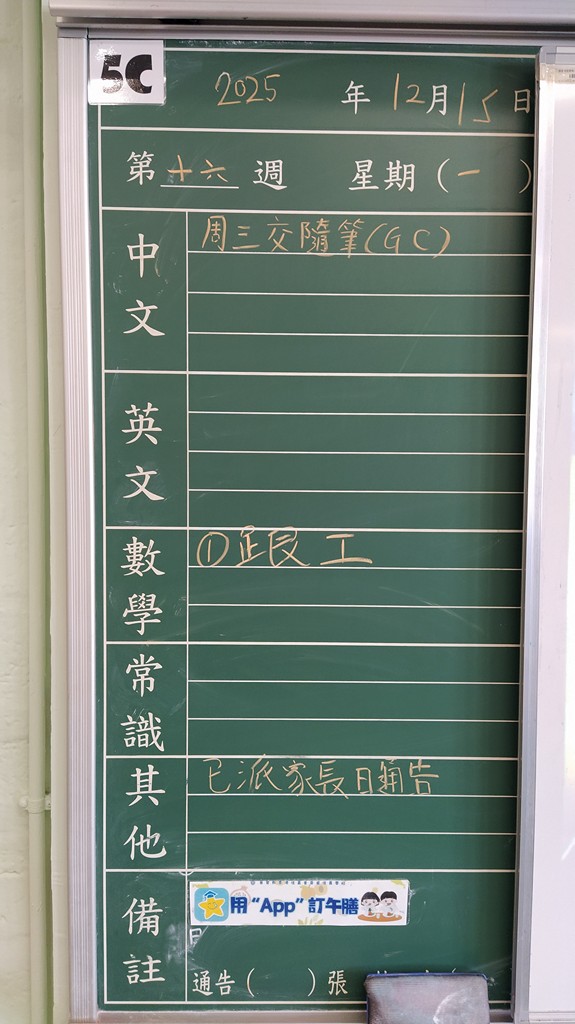 5C
2025 年 12月 15 日
第 十六 週 星期 ( 一 )
中文
周三交隨筆(GC)
英文
數學
①跟工
常識
其他
已派家長日通告
備註
用“App”訂午膳
通告 ( ) 張